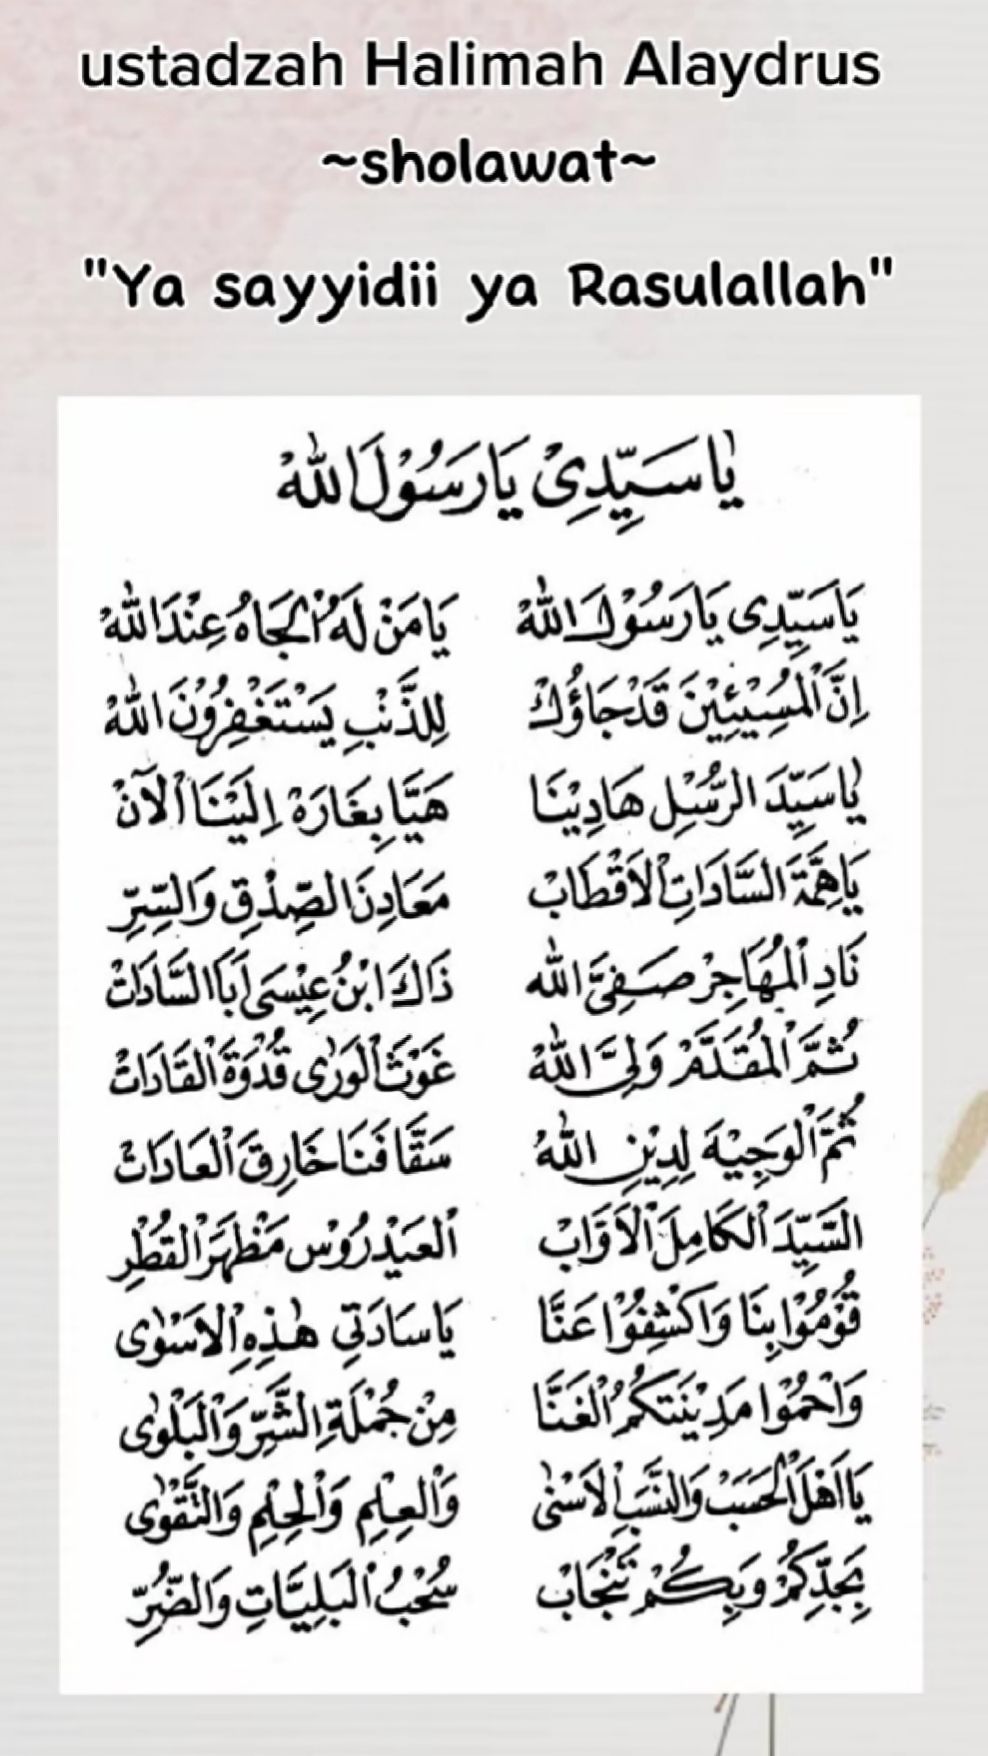 ustadzah Halimah Alaydrus
~sholawat~
"Ya sayyidii ya Rasulallah"
يَا سَيِّدِيْ يَا رَسُوْلَ اللهْ
يَاسَيِّدِى يَارَسُوْلَ اللهْ يَامَنْ لَهُ الْجَاهُ عِنْدَ اللهْ
اِنَّ الْمُسِيْئِيْنَ قَدْجَاؤُكْ لِلذَّنْبِ يَسْتَغْفِرُوْنَ اللهْ
يَاسَيِّدَ الرُّسْلِ هَادِيْنَا هَيَّا بِغَارَةْ اِلَيْنَا الْآنْ
يَاهِمَّةَ السَّادَاتِ الْاَقْطَابْ مَعَادِنَ الصِّدْقِ وَالسِّرِّ
نَادِ الْمُهَاجِرْ صَفِىَّ الله ذَاكَ ابْنُ عِيْسَى اَبَا السَّادَاتْ
ثُمَّ الْمُقَدَّمْ وَلِىَّ اللهْ غَوْثَ الْوَرٰى قُدْوَةَ الْقَادَاتْ
ثُمَّ الْوَجِيْهَ لِدِيْنِ اللهْ سَقَّافَنَا خَارِقَ الْعَادَاتْ
السَّيِّدَ الْكَامِلَ الْاَوَّابْ الْعَيْدَرُوْس مَظْهَرَ الْقُطْرِ
قُوْمُوْا بِنَا وَاكْشِفُوْا عَنَّا يَاسَادَتِي هٰذِهِ الْاَسْوٰى
وَاحْمُوْا مَدِيْنَتَكُمُ الْغَنَّا مِنْ جُمْلَةِ الشَّرِّ وَالْبَلْوٰى
يَااَهْلَ الْحَسَبْ وَالنَّسَبِ الْاَسْنٰى وَالْعِلْمِ وَالْحِلْمِ وَالتَّقْوٰى
بِجَدِّكُمْ وَبِكُمْ تَنْجَابْ سُحْبُ الْبَلِيَّاتِ وَالضُّرِّ